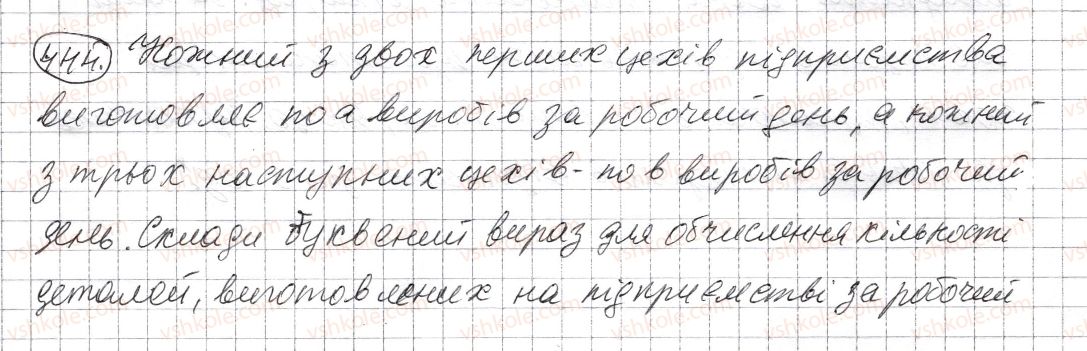 444. Кожний з двох перших цехів підприємства
виготовляє по а виробів за робочий день, а кожний
з трьох наступних цехів - по в виробів за робочий
день. Склади буквений вираз для обчислення кількості
деталей, виготовлених на підприємстві за робочий